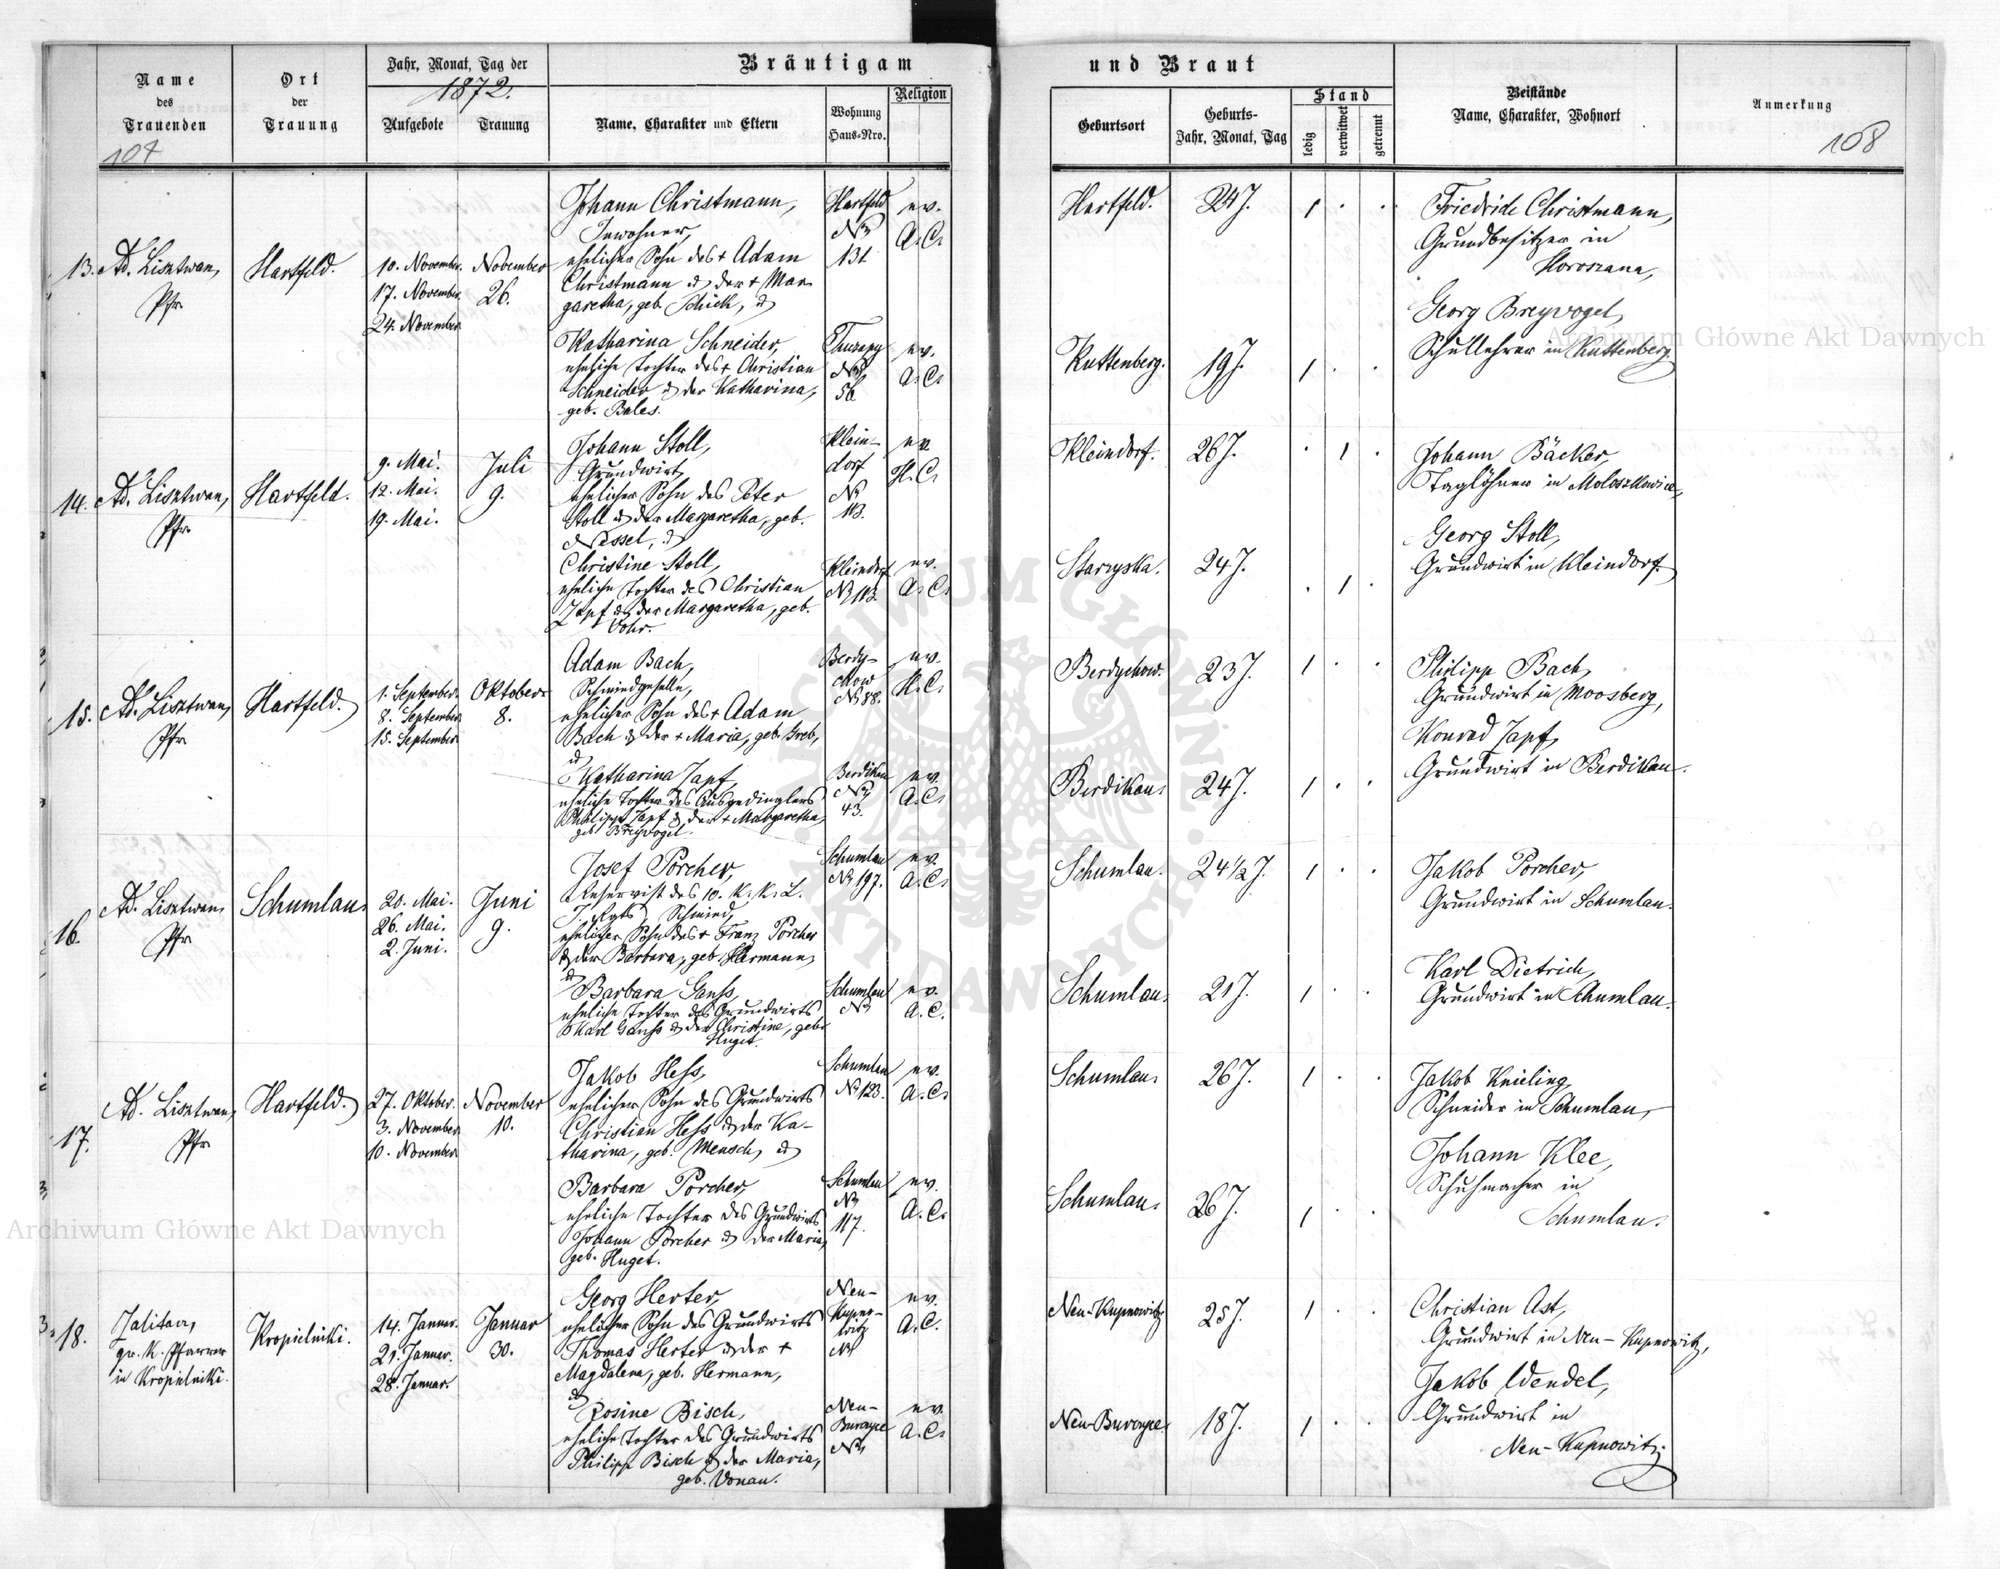 Name des Trauenden
Ort der Trauung
Jahr, Monat, Tag der
1872.
Aufgebote
Trauung
Bräutigam und Braut
Name, Charakter und Eltern
Wohnung Haus-Nro.
Religion
Geburtsort
Geburts-Jahr, Monat, Tag
Stand
ledig
verwitwet
getrennt
Beistände
Name, Charakter, Wohnort
Anmerkung
107
108
13. Ad. Lisztwan, Pfr
Hartfeld.
10. November.
17. November
24. November
November 26.
Johann Christmann,
Inwohner,
ehelicher Sohn des + Adam
Christmann & der + Mar-
garetha, geb. Schick, &
Hartfeld
No
131
ev.
A. C.
Hartfeld.
24 J.
1 . .
Friedrich Christmann,
Grundbesitzer in
Horoszana,
Katharina Schneider,
eheliche Tochter des + Christian
Schneider & der Katharina,
geb. Bales.
No
56
ev.
A. C.
Kuttenberg.
19 J.
1 . .
Georg Breyvogel,
Schullehrer in Kuttenberg
14. Ad. Lisztwan, Pfr
Hartfeld.
9. Mai.
12. Mai.
19. Mai.
Juli 9.
Johann Stoll,
Grundwirt,
ehelicher Sohn des Peter
Stoll & der Margaretha, geb.
Nessel, &
Klein-
dorf
No
113.
ev
H. C.
Kleindorf.
26 J.
. 1 .
Johann Bäcker,
Taglöhner in
Christine Stoll,
eheliche Tochter des Christian
Zapf & der Margaretha, geb.
Kleindorf
No 113.
ev.
A. C.
Starzyska.
24 J.
. 1 .
Georg Stoll,
Grundwirt in Kleindorf.
15. Ad. Lisztwan, Pfr
Hartfeld.
1. September.
8. September
15. September
Oktober 8.
Adam Bach,
Schmiedgeselle,
ehelicher Sohn des + Adam
Bach & der + Maria, geb. Greb,
&
Berdy-
chow
No 88.
ev.
H. C.
Berdychow.
23 J.
1 . .
Philipp Bach,
Grundwirt in Moosberg,
Katharina Zapf
eheliche Tochter des Ausgedinglers
Philipp Zapf & der + Margaretha,
geb. Breyvogel.
Berdikau
No
43.
ev.
A. C.
Berdikau.
24 J.
1 . .
Konrad Zapf,
Grundwirt in Berdikau.
16. Ad. Lisztwan, Pfr
Schumlau.
20. Mai.
26. Mai.
2. Juni.
Juni 9.
Josef Porcher,
Reservist des 10. K. K. L.
J. Rgts, Schmied,
ehelicher Sohn des + Franz Porcher
& der Barbara, geb. Hermann,
&
Schumlau
No 197.
ev.
A. C.
Schumlau.
24 1/2 J.
1 . .
Jakob Porcher,
Grundwirt in Schumlau.
Barbara Ganss,
eheliche Tochter des Grundwirts
Karl Ganss & der Christine, geb.
Huget.
Schumlau
No
ev.
A. C.
Schumlau.
21 J.
1 . .
Karl Dietrich,
Grundwirt in Schumlau.
17. Ad. Lisztwan, Pfr
Hartfeld.
27. Oktober.
3. November
10. November
November 10.
Jakob Hess,
ehelicher Sohn des Grundwirts
Christian Hess & der Ka-
tharina, geb. Mensch, &
Schumlau
No 123.
ev.
A. C.
Schumlau.
26 J.
1 . .
Jakob Knieling,
Schneider in Schumlau,
Barbara Porcher,
eheliche Tochter des Grundwirts
Johann Porcher & der Maria,
geb. Huget.
Schumlau
No
117.
ev.
A. C.
Schumlau.
26 J.
1 . .
Johann Klee,
Schuhmacher in
Schumlau.
18.
gr. K. Pfarrer
in Kropielniki.
Kropielniki.
14. Januar.
21. Januar.
28. Januar.
Januar 30.
Georg Herter,
ehelicher Sohn des Grundwirts
Thomas Herter & der +
Magdalena, geb. Hermann,
&
Neu-
Kupno-
witz
No
ev.
A. C.
Neu-Kupnowitz
25 J.
1 . .
Christian Ast,
Grundwirt in Neu-Kupnowitz,
Rosine Bisch,
eheliche Tochter des Grundwirts
Philipp Bisch & der Maria,
geb. Donau.
Neu-
No
ev.
A. C.
18 J.
1 . .
Jakob Wendel,
Grundwirt in
Neu-Kupnowitz.
Archiwum Główne Akt Dawnych
Archiwum Główne Akt Dawnych
ARCHIWUM GŁÓWNE AKT DAWNYCH